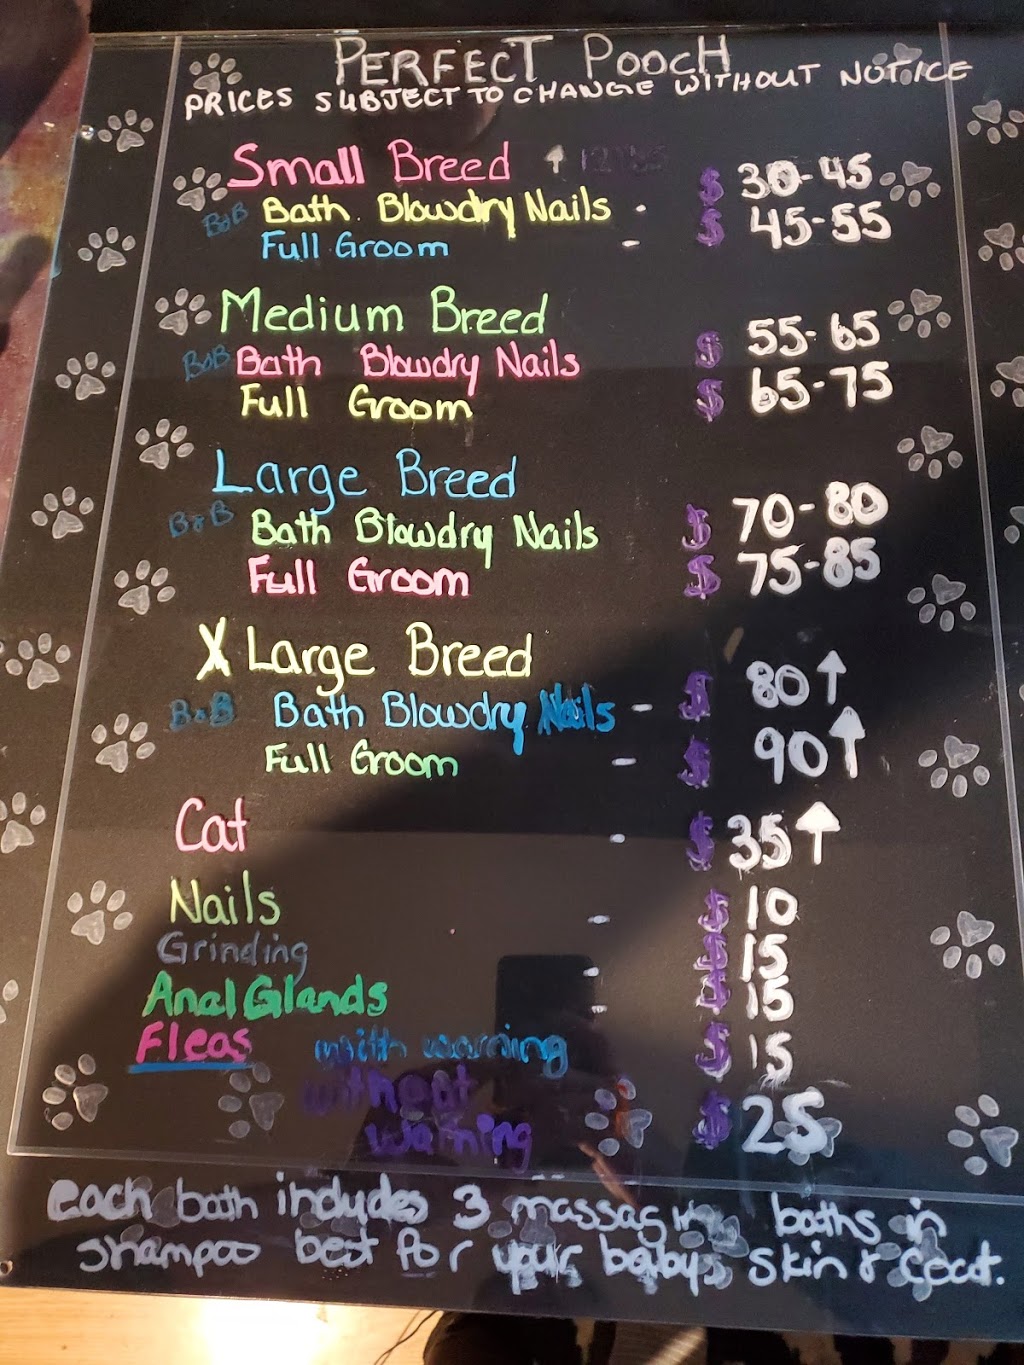 PERFECT POOCH
PRICES SUBJECT TO CHANGE WITHOUT NOTICE
Small Breed ↑ $ 30-45
BxB Bath Blowdry Nails - $ 45-55
Full Groom -
Medium Breed $ 55-65
BxB Bath Blowdry Nails $ 65-75
Full Groom
Large Breed
BxB Bath Blowdry Nails $ 70-80
Full Groom $ 75-85
X Large Breed
BxB Bath Blowdry Nails - $ 80↑
Full Groom - $ 90↑
Cat - $ 35↑
Nails - $ 10
Grinding - $ 15
Anal Glands - $ 15
Fleas with warning $ 15
without warning $ 25
each bath includes 3 massaging baths in
shampoo best for your babys skin & coat.